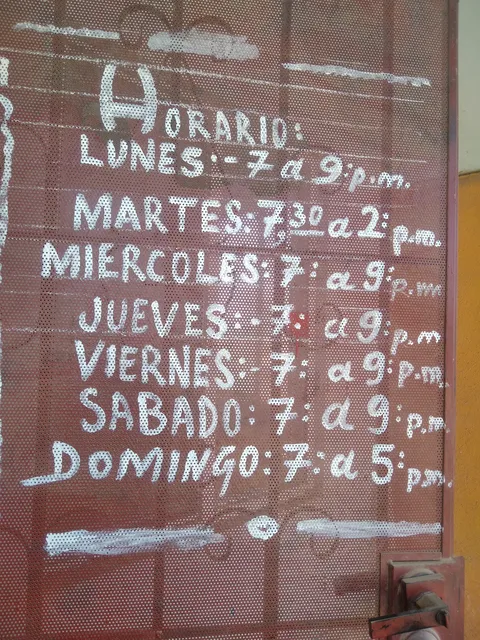 HORARIO:
LUNES:- 7 a 9:p.m.
MARTES: 7:30 a 2: p.m.
MIERCOLES: 7: a 9: p.m
JUEVES:- 7: a 9: p.m
VIERNES:- 7: a 9: p.m.
SABADO: 7: a 9: p.m.
DOMINGO: 7: a 5: p.m.